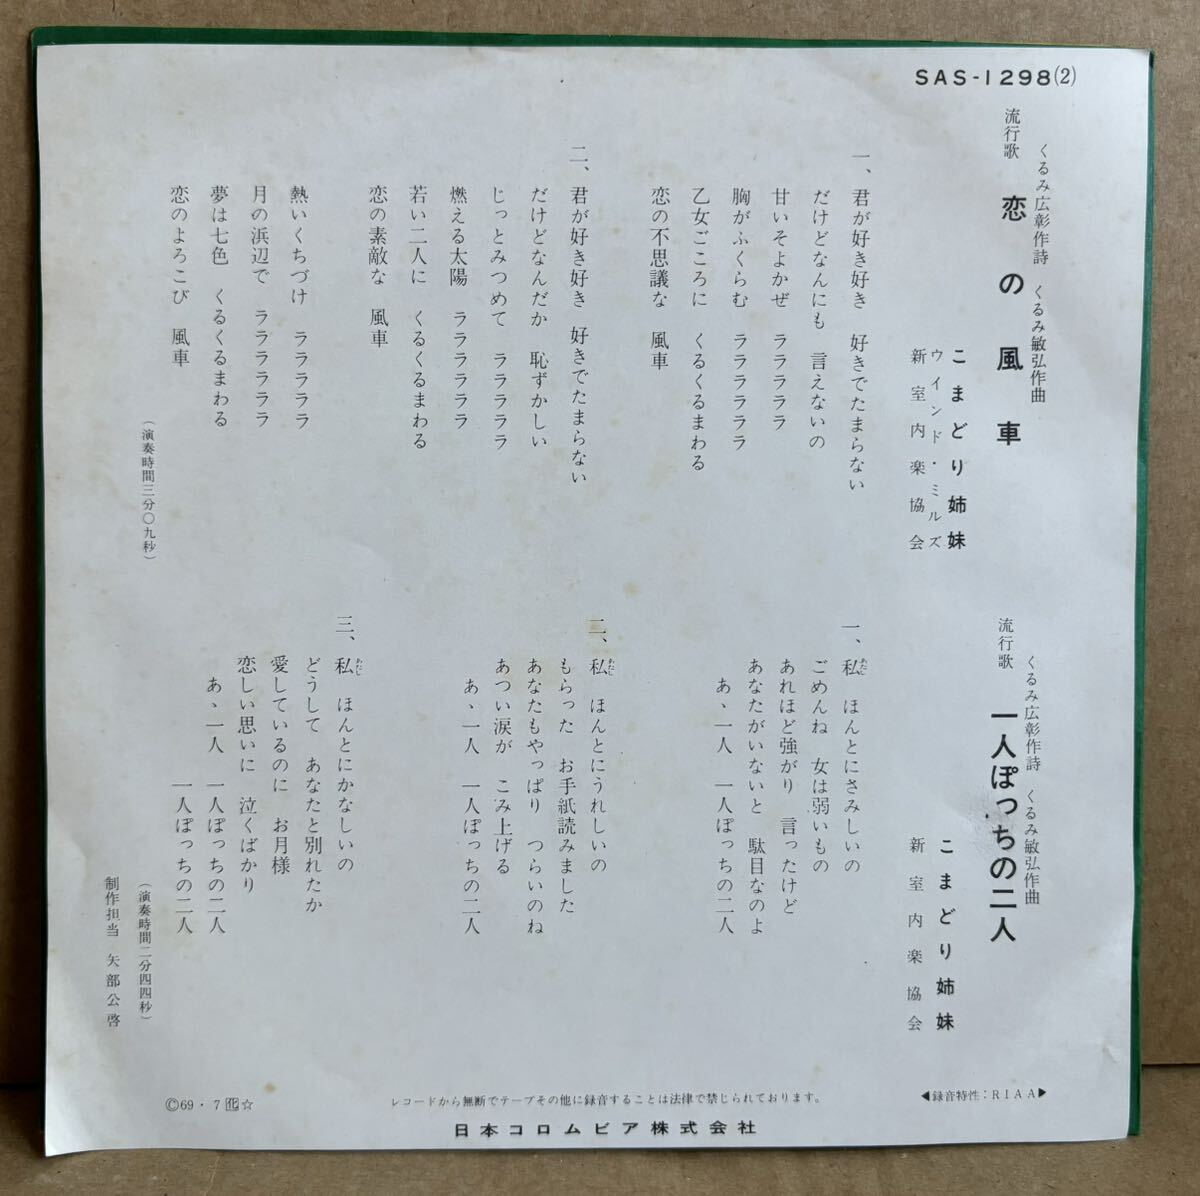 SAS-1298(2)
くるみ広彰作詩 くるみ敏弘作曲
流行歌 恋の風車
こまどり姉妹
ウインド・ミルズ
新室内楽協会
一、君が好き好き 好きでたまらない
だけどなんにも 言えないの
甘いそよかぜ ララララ
胸がふくらむ ララララララ
乙女ごころに くるくるまわる
恋の不思議な 風車
二、君が好き好き 好きでたまらない
だけどなんだか 恥ずかしい
じっとみつめて ララララ
燃える太陽 ララララララ
若い二人に くるくるまわる
恋の素敵な 風車
熱いくちづけ ララララ
月の浜辺で ララララララ
夢は七色 くるくるまわる
恋のよろこび 風車
(演奏時間三分〇九秒)
くるみ広彰作詩 くるみ敏弘作曲
流行歌 一人ぽっちの二人
こまどり姉妹
新室内楽協会
一、私(あたし) ほんとにさみしいの
ごめんね 女は弱いもの
あれほど強がり 言ったけど
あなたがいないと 駄目なのよ
あゝ一人 一人ぽっちの二人
二、私(あたし) ほんとにうれしいの
もらった お手紙読みました
あなたもやっぱり つらいのね
あつい涙が こみ上げる
あゝ一人 一人ぽっちの二人
三、私(あたし) ほんとにかなしいの
どうして あなたと別れたか
愛しているのに お月様
恋しい思いに 泣くばかり
あゝ一人 一人ぽっちの二人
一人ぽっちの二人
(演奏時間二分四四秒)
制作担当 矢部公啓
Ⓒ69・7 ☆
レコードから無断でテープその他に録音することは法律で禁じられております。
◀録音特性:RIAA▶
日本コロムビア株式会社